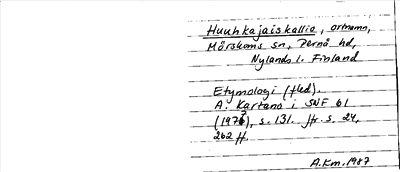 Huuhkajaiskallio, ortnamn,
Mörskoms sn, Pernå hd,
Nylands l. Finland
Etymologi (fled).
A. Kartano i SNF 61
(1977), s. 131. Jfr. s. 24,
262 ff.
A.Km. 1987